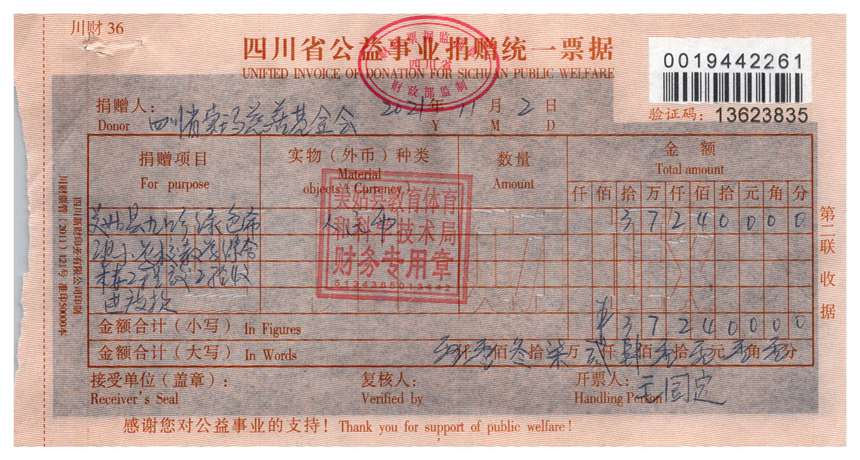 川财 36
四川省公益事业捐赠统一票据
UNIFIED INVOICE OF DONATION FOR SICHUAN PUBLIC WELFARE
四川省
财政部监制
0019442261
验证码：13623835
捐赠人：四川省 慈善基金会 2021年 11月 2日
Donor Y M D
捐赠项目 实物（外币）种类 数量 金额
For purpose Material objects ( Currency ) Amount Total amount
仟佰拾万仟佰拾元角分
人民币 37240000
美姑县教育体育
和科学技术局
财务专用章
金额合计（小写） In Figures ¥37240000
金额合计（大写） In Words 零仟零佰叁拾柒万贰仟肆佰零拾零元零角零分
接受单位（盖章）： 复核人： 开票人：王国定
Receiver's Seal Verified by Handling Person
感谢您对公益事业的支持！ Thank you for support of public welfare!
第二联 收据